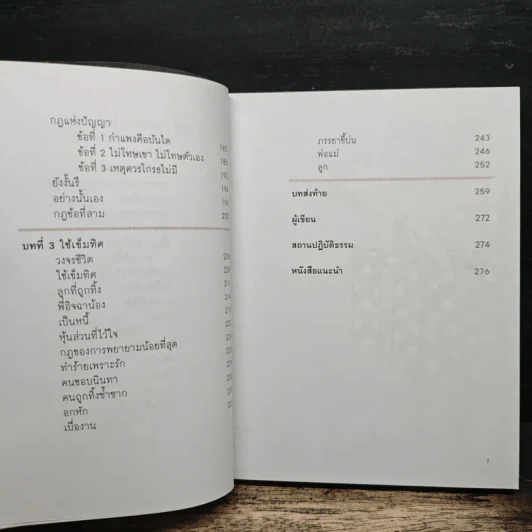 กฎแห่งปัญญา
ข้อที่ 1 กำแพงคือบันได
ข้อที่ 2 ไม่โทษเขา ไม่โทษตัวเอง 186
ข้อที่ 3 เหตุควรโกรธไม่มี 190
ยังงั้นรึ
อย่างนั้นเอง
กฎข้อที่สาม
บทที่ 3 ใช้เข็มทิศ
วงจรชีวิต
ใช้เข็มทิศ
ลูกที่ถูกทิ้ง
พี่อิจฉาน้อง
เป็นหนี้
หุ้นส่วนที่ไว้ใจ
กฎของการพยายามน้อยที่สุด
ทำร้ายเพราะรัก
คนชอบนินทา
คนถูกทิ้งซ้ำซาก
อกหัก
เบื่องาน
ภรรยาขี้บ่น 243
พ่อแม่ 246
ลูก 252
บทส่งท้าย 259
ผู้เขียน 272
สถานปฏิบัติธรรม 274
หนังสือแนะนำ 276
7